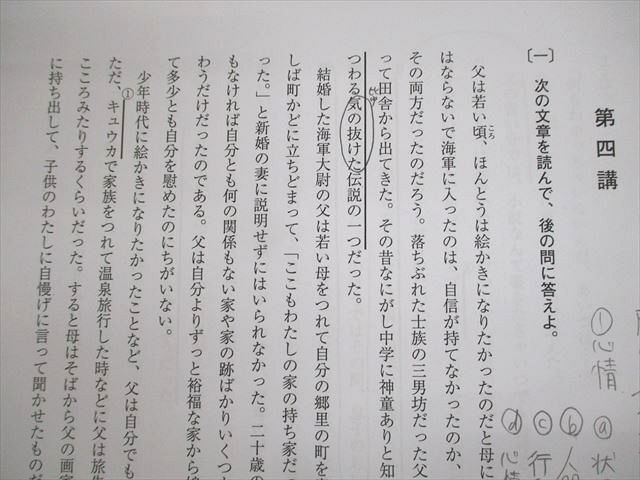 第四講
〔一〕 次の文章を読んで、後の問に答えよ。
父は若い頃、ほんとうは絵かきになりたかったのだと母に
ころ
はならないで海軍に入ったのは、自信が持てなかったのか、
その両方だったのだろう。落ちぶれた士族の三男坊だった父
って田舎から出てきた。その昔なにがし中学に神童ありと知
つわる気の抜けた伝説の一つだった。
結婚した海軍大尉の父は若い母をつれて自分の郷里の町を
しば町かどに立ちどまって、「ここもわたしの家の持ち家だっ
った。」と新婚の妻に説明せずにはいられなかった。二十歳の
もなければ自分とも何の関係もない家や家の跡ばかりいくつ
わうだけだったのである。父は自分よりずっと裕福な家から
て多少とも自分を慰めたのにちがいない。
少年時代に絵かきになりたかったことなど、父は自分でも
①
ただ、キュウカで家族をつれて温泉旅行した時などに父は旅
こころみたりするくらいだった。すると母はそばから父の画
に持ち出して、子供のわたしに自慢げに言って聞かせたものだ
①心情
ⓐ状
ⓑ人
ⓒ行
ⓓ心情